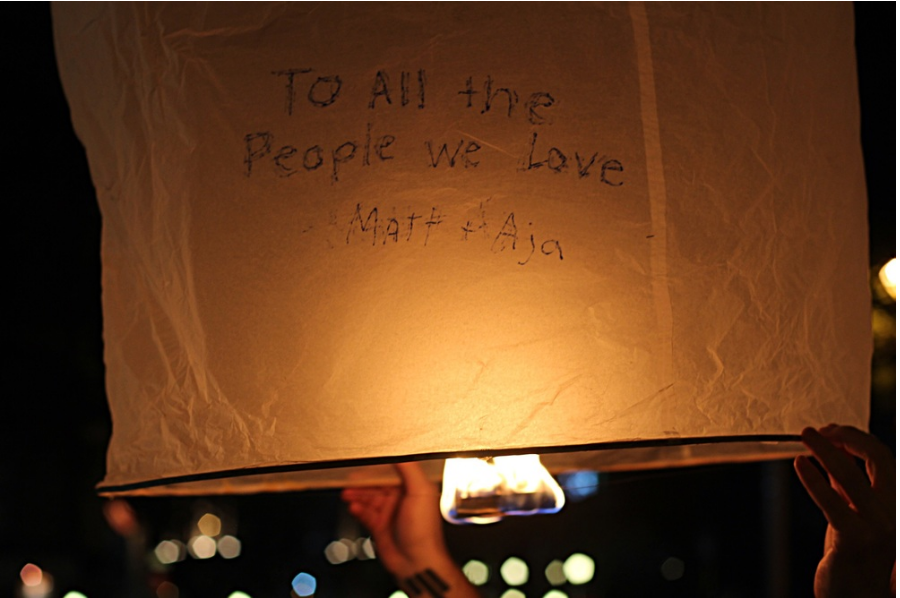 To All the
People we Love
Matt + Aja